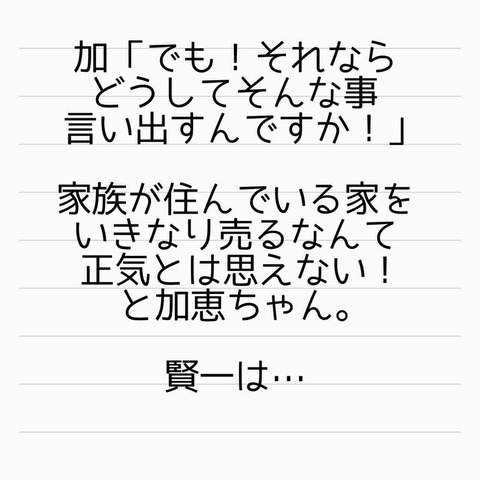 加「でも！それなら
どうしてそんな事
言い出すんですか！」
家族が住んでいる家を
いきなり売るなんて
正気とは思えない！
と加恵ちゃん。
賢一は…